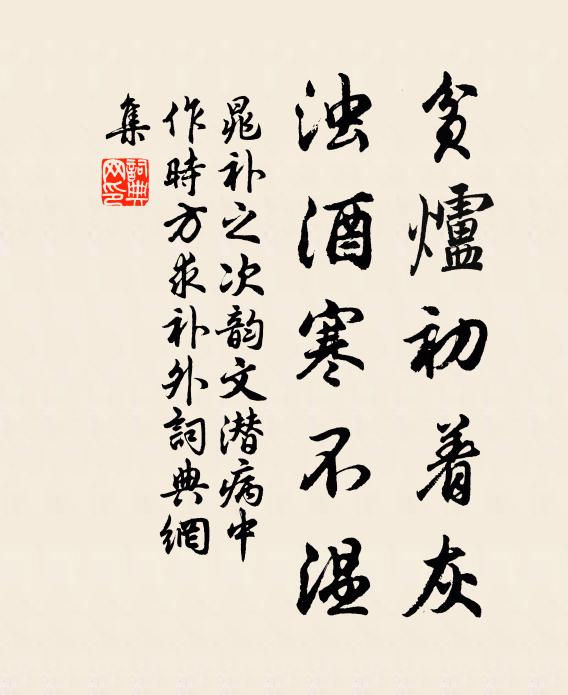 貧爐初着灰
浊酒寒不温
晁补之次韵文潜病中
作時方求补外詞典網
集
詞典網印